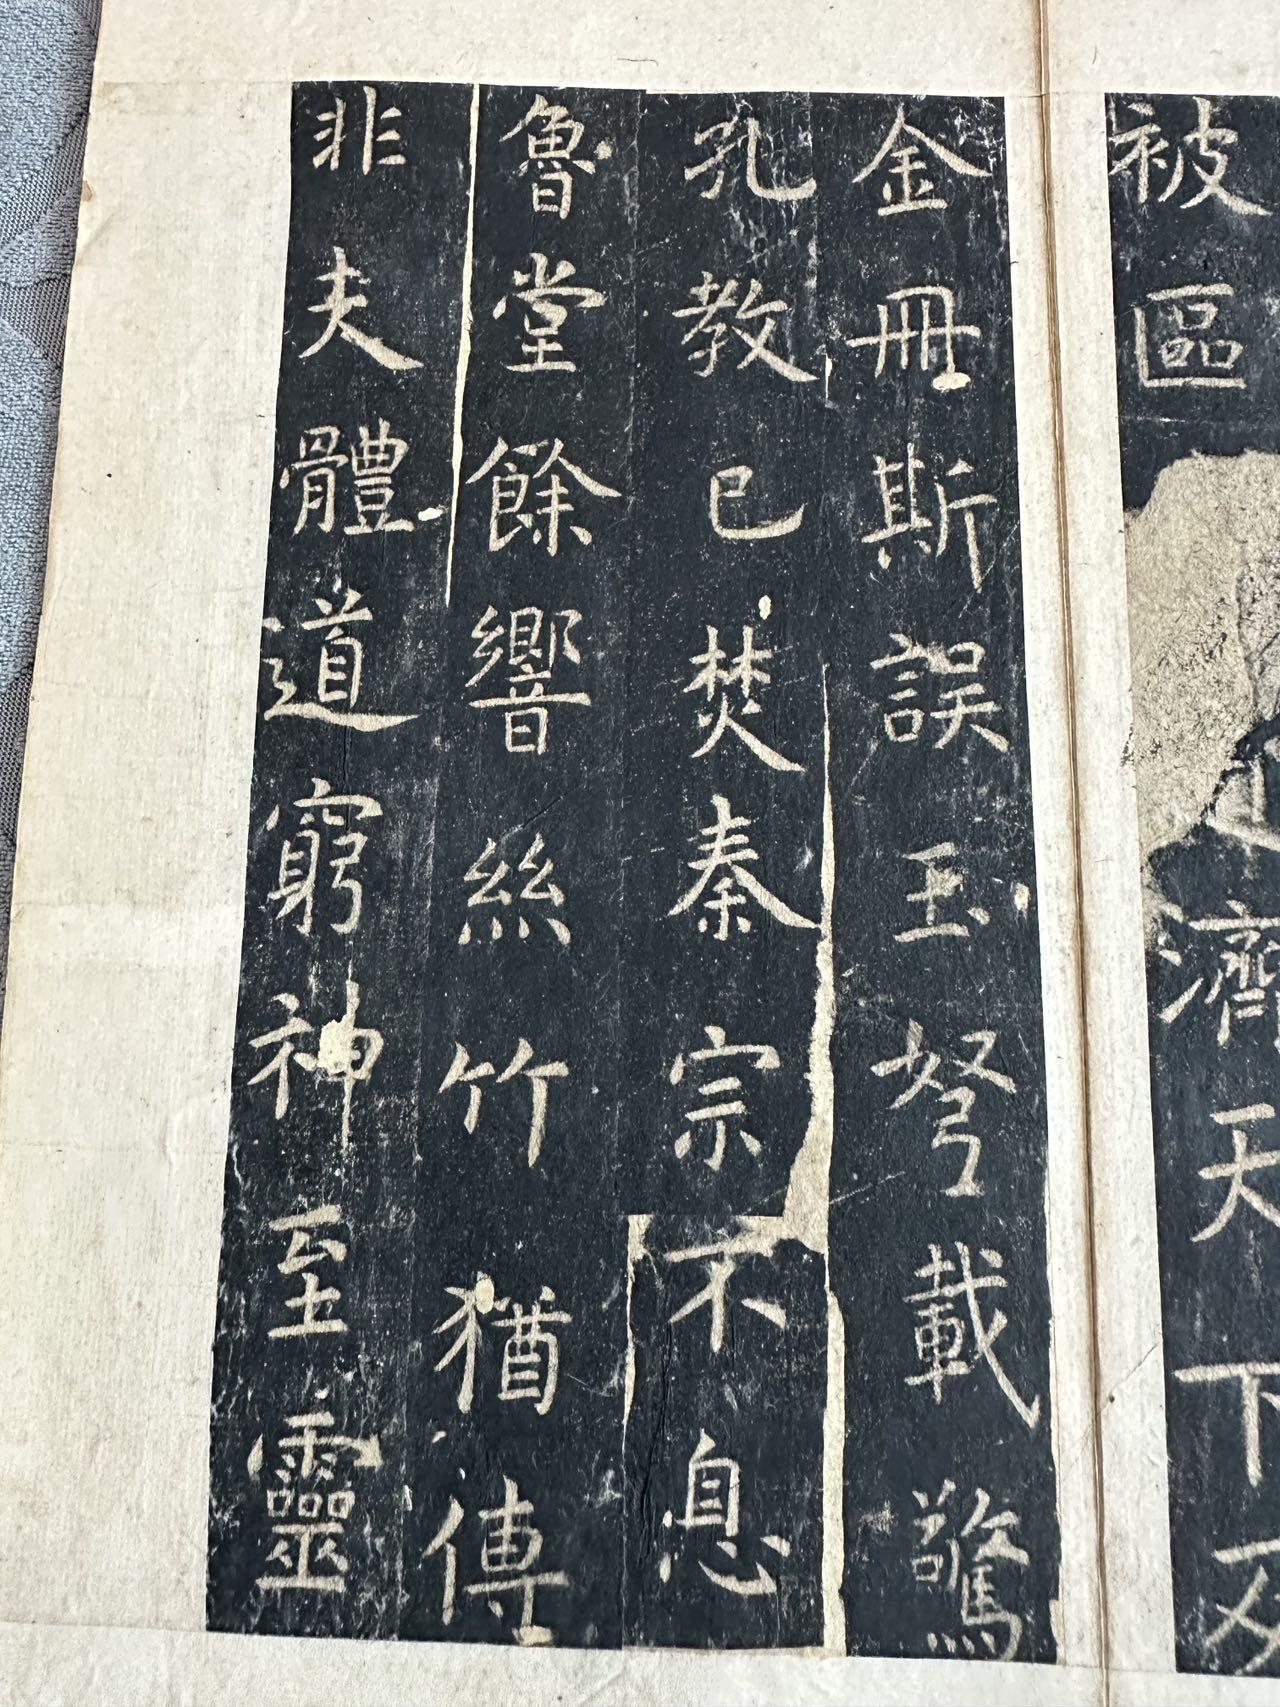 被區
濟天下
金冊斯誤玉弩載驚
孔教已焚秦宗不息
魯堂餘響絲竹猶傳
非夫體道窮神至靈